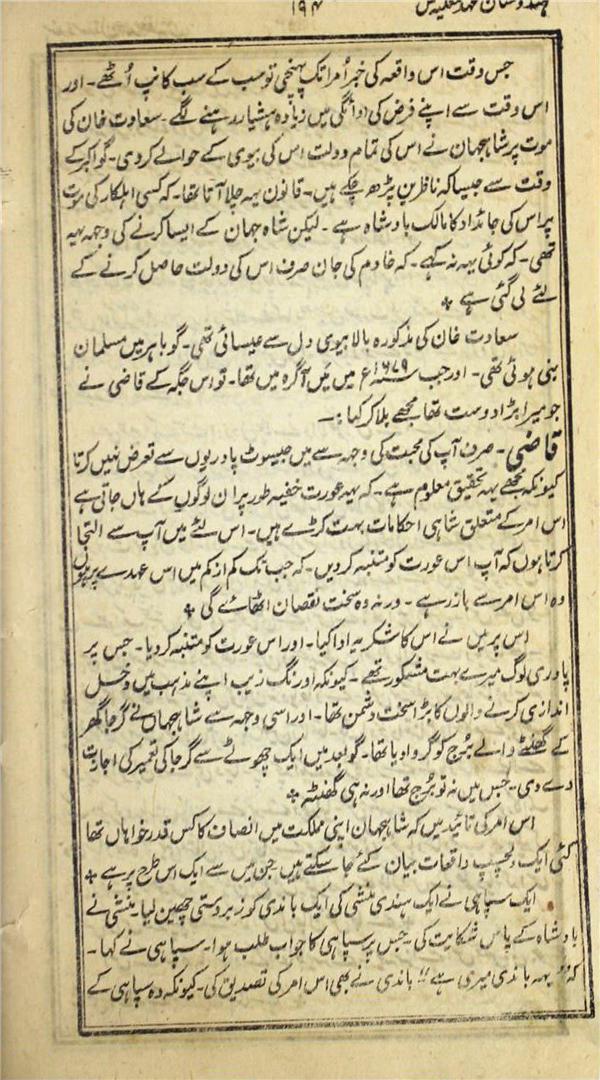 ہندوستان عہد مغلیہ میں ۱۹۴
جس وقت اس واقعہ کی خبر اُمرا تک پہنچی تو سب کے سب کانپ اُٹھے۔ اور
اس وقت سے اپنے فرض کی ادائگی میں زیادہ ہشیار رہنے لگے۔ سعادت خان کی
موت پر شاہجہان نے اس کی تمام دولت اس کی بیوی کے حوالے کردی۔ گو اکبر کے
وقت سے جیسا کہ ناظرین پڑھ چکے ہیں۔ قانون یہہ چلا آتا تھا۔ کہ کسی اہلکار کی موت
پر اس کی جائداد کا مالک بادشاہ ہے۔ لیکن شاہ جہان کے ایسا کرنے کی وجہہ یہہ
تھی۔ کہ کوئی یہہ نہ کہے۔ کہ خادم کی جان صرف اس کی دولت حاصل کرنے کے
لئے لی گئی ہے ٭
سعادت خان کی مذکورہ بالا بیوی دل سے عیسائی تھی۔ گو باہر میں مسلمان
بنی ہوئی تھی۔ اور جب ۱۶۷۹ء میں مَیں آگرہ میں تھا۔ تو اس جگہ کے قاضی نے
جو میرا بڑا دوست تھا مجھے بلا کر کہا :۔
قاضی۔ صرف آپ کی محبت کی وجہہ سے میں جیسوٹ پادریوں سے تعرض نہیں کرتا
کیونکہ مجھے یہہ تحقیق معلوم ہے۔ کہ یہہ عورت خفیہ طور پر ان لوگوں کے ہاں جاتی ہے
اس امر کے متعلق شاہی احکامات بہت کڑے ہیں۔ اس لئے میں آپ سے التجا
کرتا ہوں کہ آپ اس عورت کو متنبہ کردیں۔ کہ جب تک کم از کم میں اس عہدے پر ہوں
وہ اس امر سے باز رہے۔ ورنہ وہ سخت نقصان اٹھائے گی ٭
اس پر میں نے اس کا شکریہ ادا کیا۔ اور اس عورت کو متنبہ کردیا۔ جس پر
پادری لوگ میرے بہت مشکور تھے۔ کیونکہ اورنگ زیب اپنے مذہب میں دخل
اندازی کرنے والوں کا بڑا سخت دشمن تھا۔ اور اسی وجہہ سے شاہجہان نے گرجا گھر
کے گھنٹے والے بُرج کو گروا دیا تھا۔ گو بعد میں ایک چھوٹے سے گرجا کی تعمیر کی اجازت
دے دی۔ جس میں نہ تو بُرج تھا اور نہ ہی گھنٹہ ٭
اس امر کی تائید میں کہ شاہجہان اپنی مملکت میں انصاف کا کس قدر خواہاں تھا
کئی ایک دلچسپ واقعات بیان کئے جا سکتے ہیں جن میں سے ایک اس طرح پر ہے ٭
ایک سپاہی نے ایک ہندی منشی کی ایک باندی کو زبردستی چھین لیا۔ منشی نے
بادشاہ کے پاس شکایت کی۔ جس پر سپاہی کا جواب طلب ہوا۔ سپاہی نے کہا۔
کہ "یہہ باندی میری ہے"! باندی نے بھی اس امر کی تصدیق کی۔ کیونکہ وہ سپاہی کے